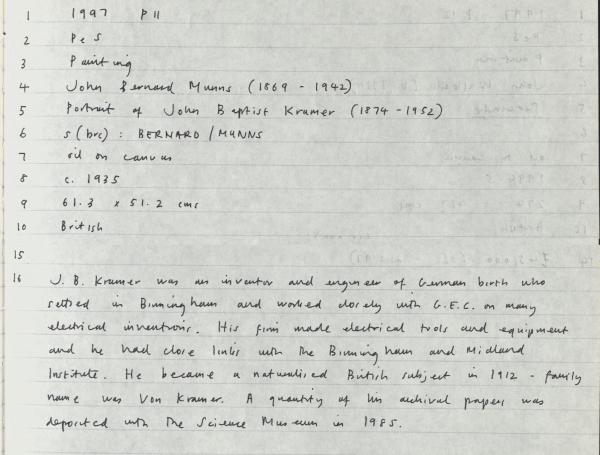 1 1997 P11
2 P e S
3 Painting
4 John Bernard Munns (1869 - 1942)
5 Portrait of John Baptist Kramer (1874 - 1952)
6 s (brc) : BERNARD / MUNNS
7 oil on canvas
8 c. 1935
9 61.3 x 51.2 cms
10 British
15
16 J. B. Kramer was an inventor and engineer of German birth who
settled in Birmingham and worked closely with G.E.C. on many
electrical inventions. His firm made electrical tools and equipment
and he had close links with the Birmingham and Midland
Institute. He became a naturalised British subject in 1912 - family
name was Von Kramer. A quantity of his archival papers was
deposited with the Science Museum in 1985.